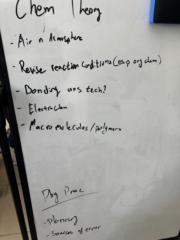 Chem Theory
- Air n Atmosphere
- Revise reaction conditions (esp org chem)
- Bonding ans tech?
- Electrochem
- Macromolecules/polymers
Phy Prac
- Planning
- Sources of error